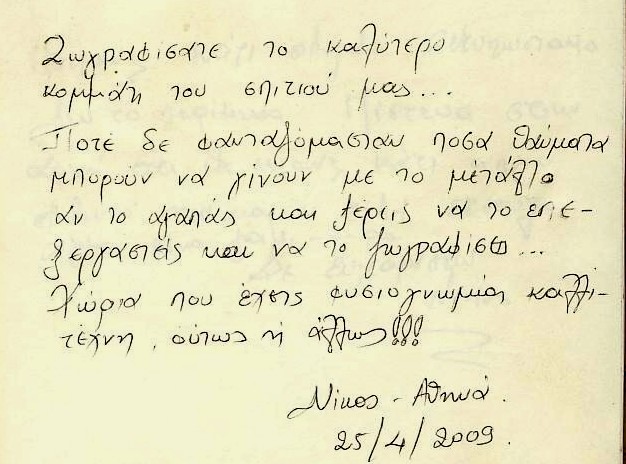 Ζωγραφισατε το καλύτερο
κομμάτι του σπιτιού μας...
Ποτέ δε φανταζόμασταν ποσα θαύματα
μπορούν να γίνουν με το μετάλλο
αν το αγαπάς και ξέρεις να το επε-
ξεργαστείς και να το ζωγραφίσεις...
Χώρια που έχεις φυσιογνωμία καλλι-
τέχνη, ούτως ή άλλως!!!
Νίκος - Αθηνά.
25/4/2009.